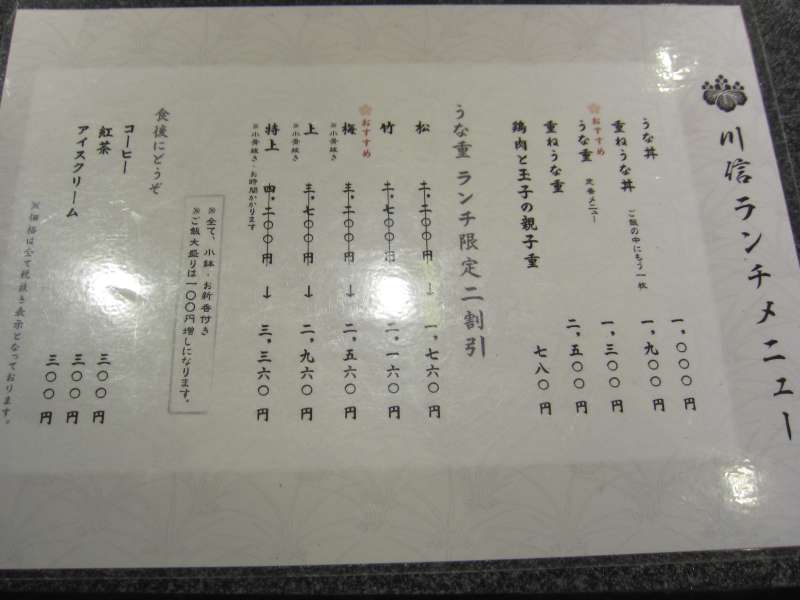 川信ランチメニュー
うな丼 一、〇〇〇円
重ねうな丼 ご飯の中にもう一枚 一、九〇〇円
おすすめ
うな重 定番メニュー 一、三〇〇円
重ねうな重 二、五〇〇円
鶏肉と玉子の親子重 七八〇円
うな重 ランチ限定二割引
松 二、二〇〇円 ↓ 一、七六〇円
竹 二、七〇〇円 ↓ 二、一六〇円
おすすめ
梅 三、二〇〇円 ↓ 二、五六〇円
※小骨抜き
上 三、七〇〇円 ↓ 二、九六〇円
※小骨抜き
特上 四、二〇〇円 ↓ 三、三六〇円
※小骨抜き・お時間かかります
※全て、小鉢・お新香付き
※ご飯大盛りは一〇〇円増しになります。
食後にどうぞ
コーヒー 三〇〇円
紅茶 三〇〇円
アイスクリーム 三〇〇円
※価格は全て税抜き表示となっております。